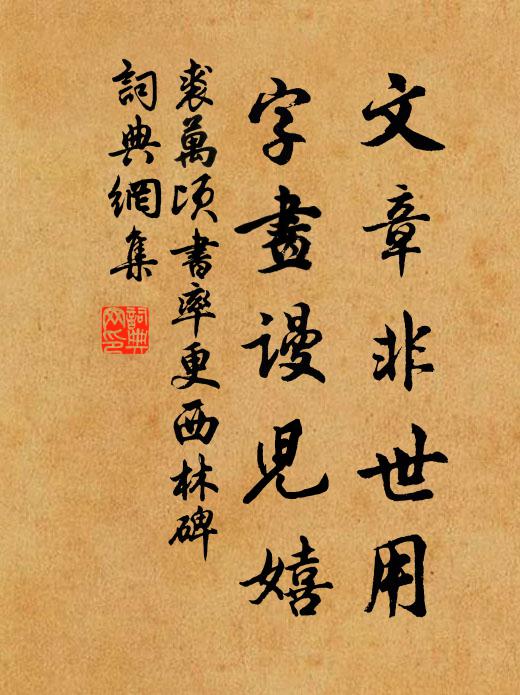 文章非世用
字畫謾兒嬉
裘萬頃書率更西林碑
詞典網集
詞典網印